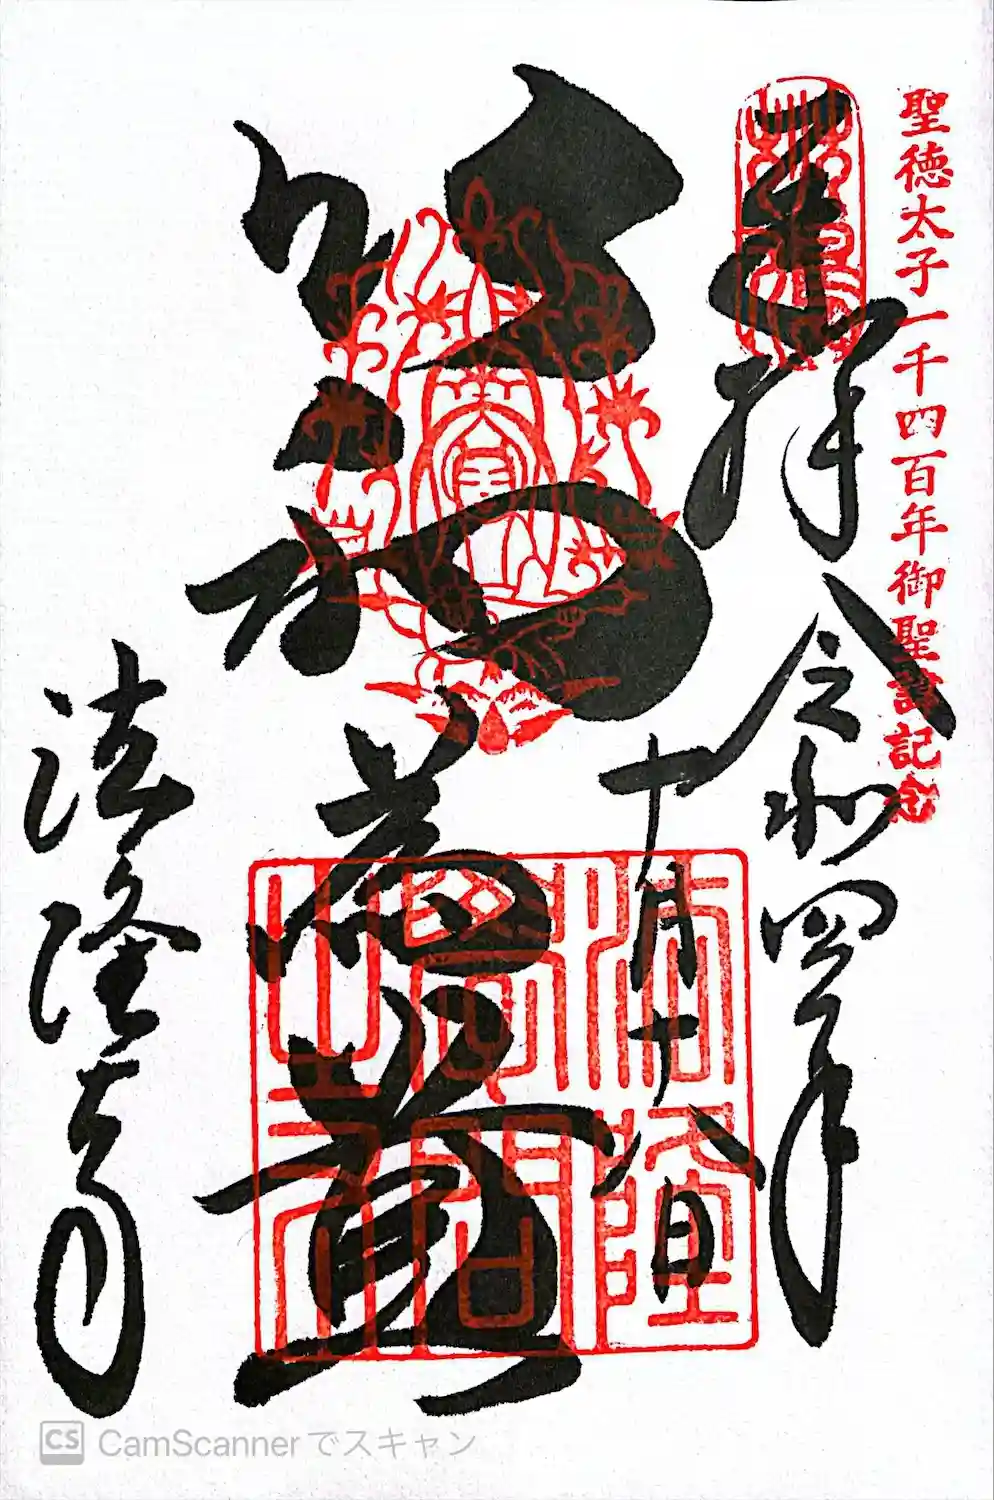 聖徳太子一千四百年御聖諱記念
奉拝 令和四年
十月十八日
以和為貴
法隆寺
CamScannerでスキャン